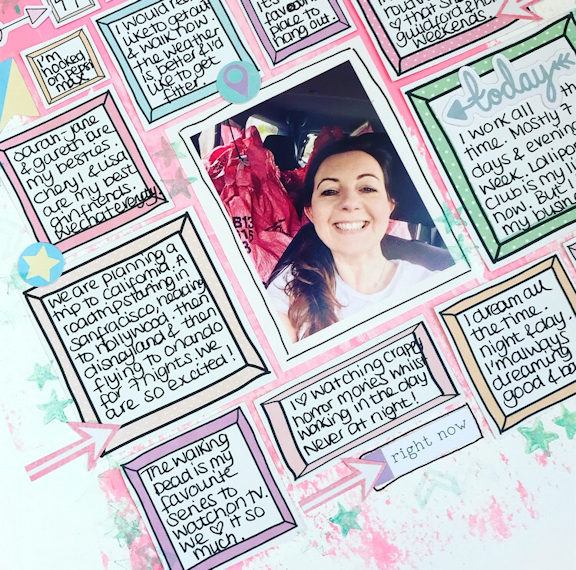 I'm
hooked
on sea
I would reall
like to get out
& walk now
the weather
is better & I'd
like to get
fitter
it's
favour
place to
hang out.
round
♡ that s
guilford & f
weekends.
today
I work all the
time. Mostly 7
days & evening
week. Lollipop
club is my li
now. But I
my busin
Sarah-Jane
& Gareth are
my besties
Cheryl & Lisa
are my best
girl friends.
We chat everyday!
B13
15
35
We are planning a
trip to California. A
roadtrip starting in
sanfracisco, heading
to Hollywood, then
disneyland & then
flying to orlando
for 7 nights. We
are so excited!
I ♡ watching crappy
horror movies whilst
working in the day
Never at night!
I dream all
the time.
night & day.
I'm always
dreaming
good & ba
right now
The walking
Dead is my
favourite
series to
watch on tv.
We ♡ it so
much.